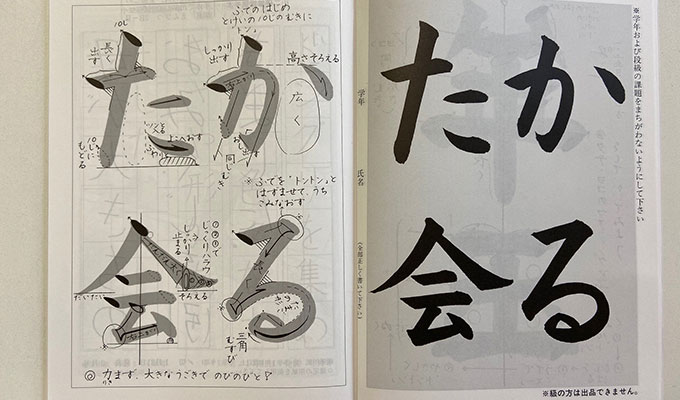 ※学年および段級の課題をまちがわないようにして下さい
かる
た会
※級の方は出品できません。
学年　氏名
(全部正しく書いて下さい)
ふでのはじめ
とけいの10じのむきに
「トン」
高さそろえる
しっかり
出す
広く
おし出す
同じむき
※ふでを「トントン」と
はずませて、うち
こみなおす
かる
三角
むすび
10じ
長く
出す
10じに
もどる
上へおす
た会
①②③で
しっくりハラウ
しっかり
止まる
たいたい
そろえる
◎力まず、大きなうごきでのびのびと!